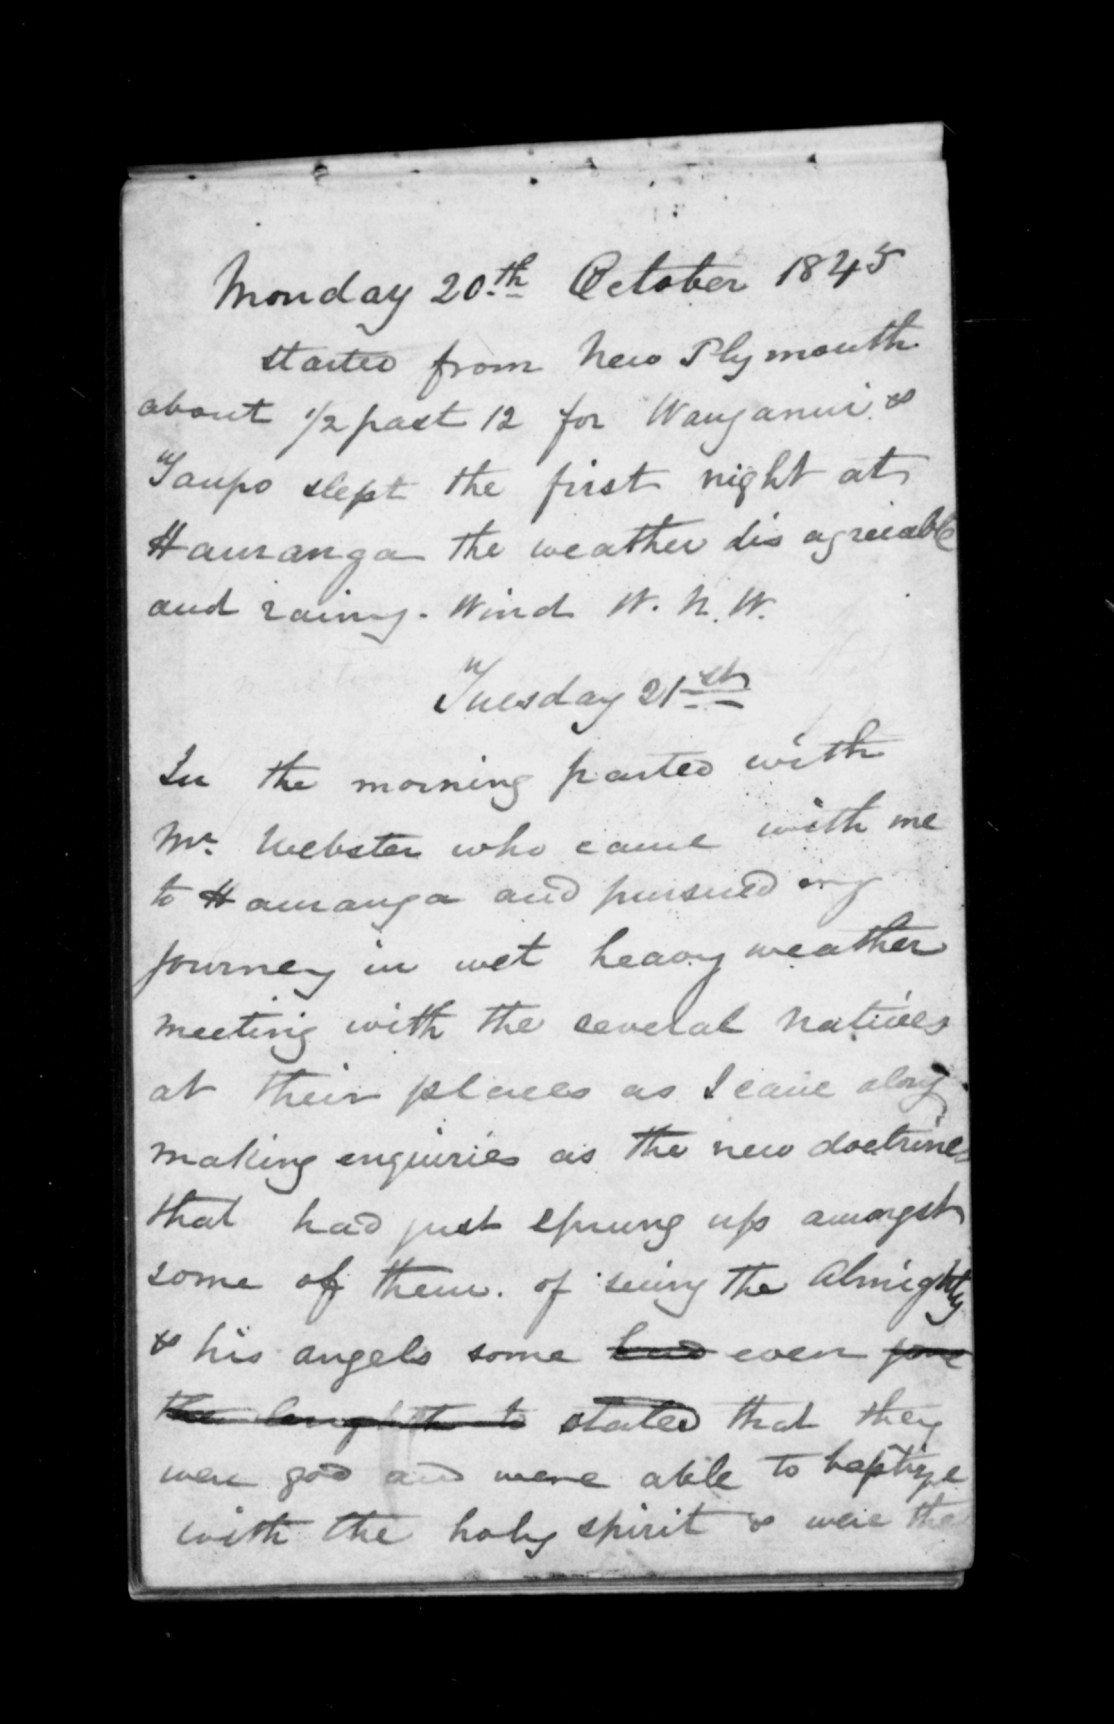 Monday 20th October 1845
started from New Plymouth
about 1/2 past 12 for Wanganui &
Taupo slept the first night at
Hauranga the weather dis agreeable
and rainy. Wind W. N. W.
Tuesday 21st
In the morning parted with
Mr. Webster who came with me
to Hauranga and pursued my
journey in wet heavy weather
meeting with the several natives
at their places as I came along
making enquiries as the new doctrines
that had just sprung up amongst
some of them. of seing the Almighty
& his angels some had even gone
the length to stated that they
were god and were able to baptize
with the holy spirit & were the